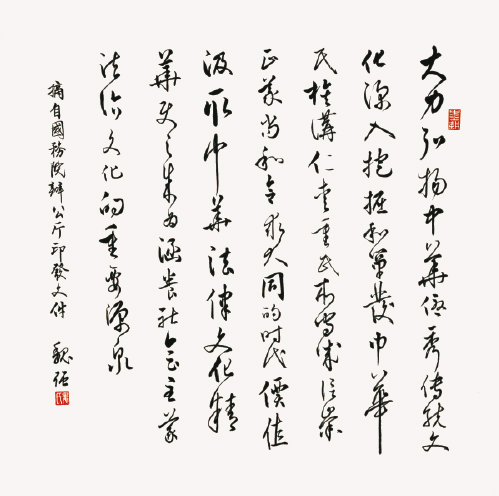 大力弘揚中華優秀傳統文
化深入挖掘和闡發中華
民族講仁愛重民本守誠信崇
正義尚和合求大同的时代價值
汲取中華法律文化精
華使之成為涵養社會主義
法治文化的重要源泉
摘自國務院辦公厅印發文件 魏强